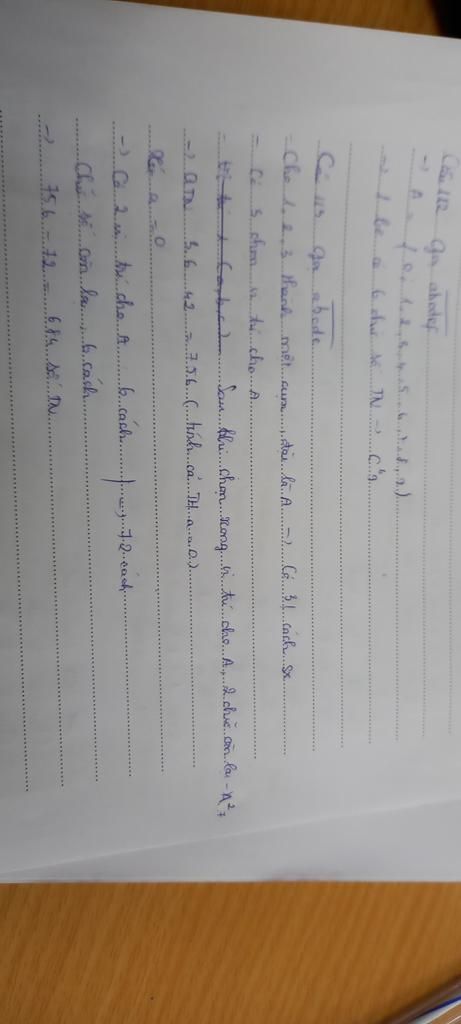 Câu 112 Gọi abcdef
→ A = { 0, 1, 2, 3, 4, 5, 6, 7, 8, 9 }
→ 1 bộ có 6 chữ số TN → C⁶₉
Câu 113 Gọi abcde
- Cho 1, 2, 3 thành một cụm, đặt là A → Có 3! cách sx
- Có 3 chọn vị trí cho A
- Sau khi chọn xong vị trí cho A, 2 chữ còn lại - A²₇
→ QTN 3.6.42 = 756 ( tính cả TH a = 0 )
Xét a = 0
→ Có 2 vị trí cho A 6 cách
Chữ số còn lại 6 cách
→ 72 cách
→ 756 - 72 = 684 số TN